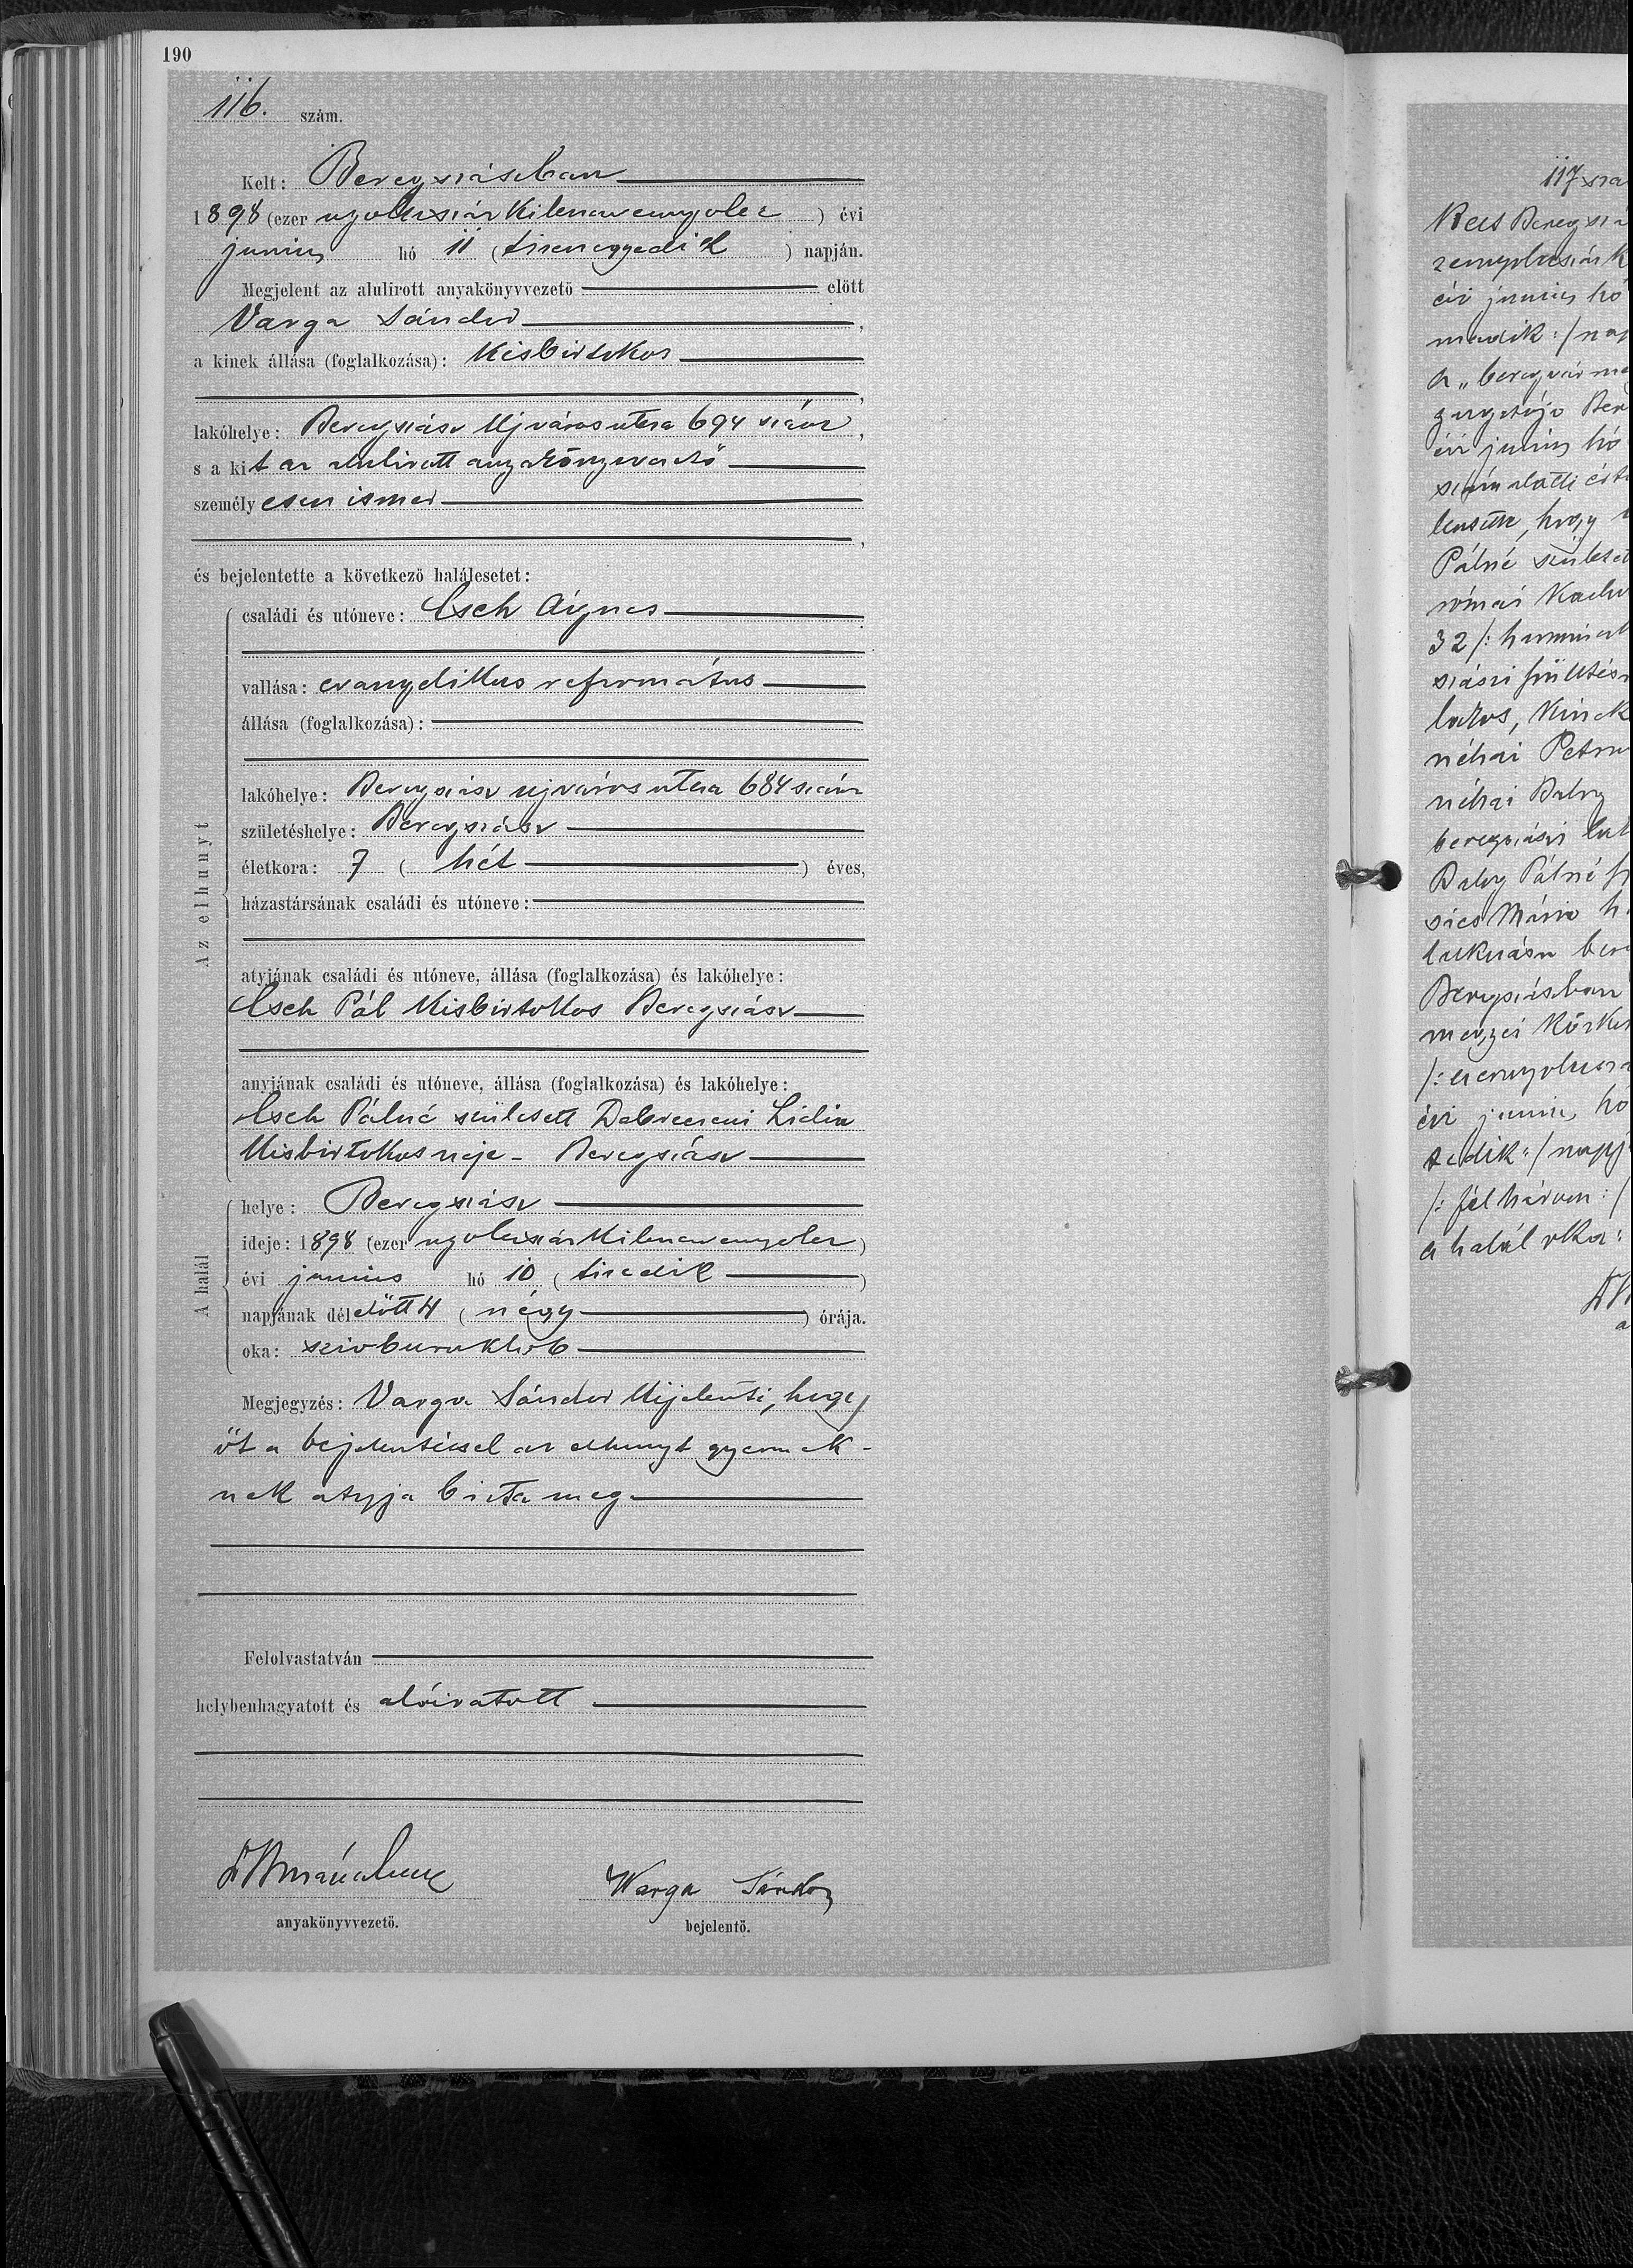 190
116. szám.
Kelt: Beregszászban
1898 (ezer nyolczszáz kilenczvennyolcz) évi
junius hó 11 (tizenegyedik) napján.
Megjelent az alulirott anyakönyvvezető előtt
Varga Sándor,
a kinek állása (foglalkozása): kisbirtokos
lakóhelye: Beregszász Ujváros utcza 694 szám,
s a kit az alulirott anyakönyvvezető
személyesen ismer
és bejelentette a következő halálesetet:
Az elhunyt
családi és utóneve: Cseh Ágnes
vallása: evangelikus református
állása (foglalkozása):
lakóhelye: Beregszász ujváros utcza 684 szám
születéshelye: Beregszász
életkora: 7 (hét) éves,
házastársának családi és utóneve:
atyjának családi és utóneve, állása (foglalkozása) és lakóhelye:
Cseh Pál kisbirtokos Beregszász
anyjának családi és utóneve, állása (foglalkozása) és lakóhelye:
Cseh Pálné született Debreczeni Lidia
kisbirtokos neje - Beregszász
A halál
helye: Beregszász
ideje: 1898 (ezer nyolczszáz kilenczvennyolcz)
évi junius hó 10 (tizedik)
napjának délelőtt 4 (négy) órája.
oka: szivburuklob
Megjegyzés: Varga Sándor kijelenti, hogy
őt a bejelentéssel az elhunyt gyermek-
nek atyja bizta meg.
Felolvastatván
helybenhagyatott és aláiratott
Warga Sándor
anyakönyvvezető. bejelentő.
117 szá
Kelt Beregszá
zernyolczszáz k
évi junius hó
madik:/ nap
a „beregvárme
gazgatója Ber
évi junius hó
szám alatti ért
lentette, hogy
Pálné születet
római kath
32 /: harmincz
szászi születés
lakos, kinek
néhai Petru
néhai Balog
beregszászi lak
Balog Pálné
Beregszászban
megyei kórhá
/: ezernyolczszá
évi junius hó
zedik:/ napj
/: fél három :/
a halál oka: